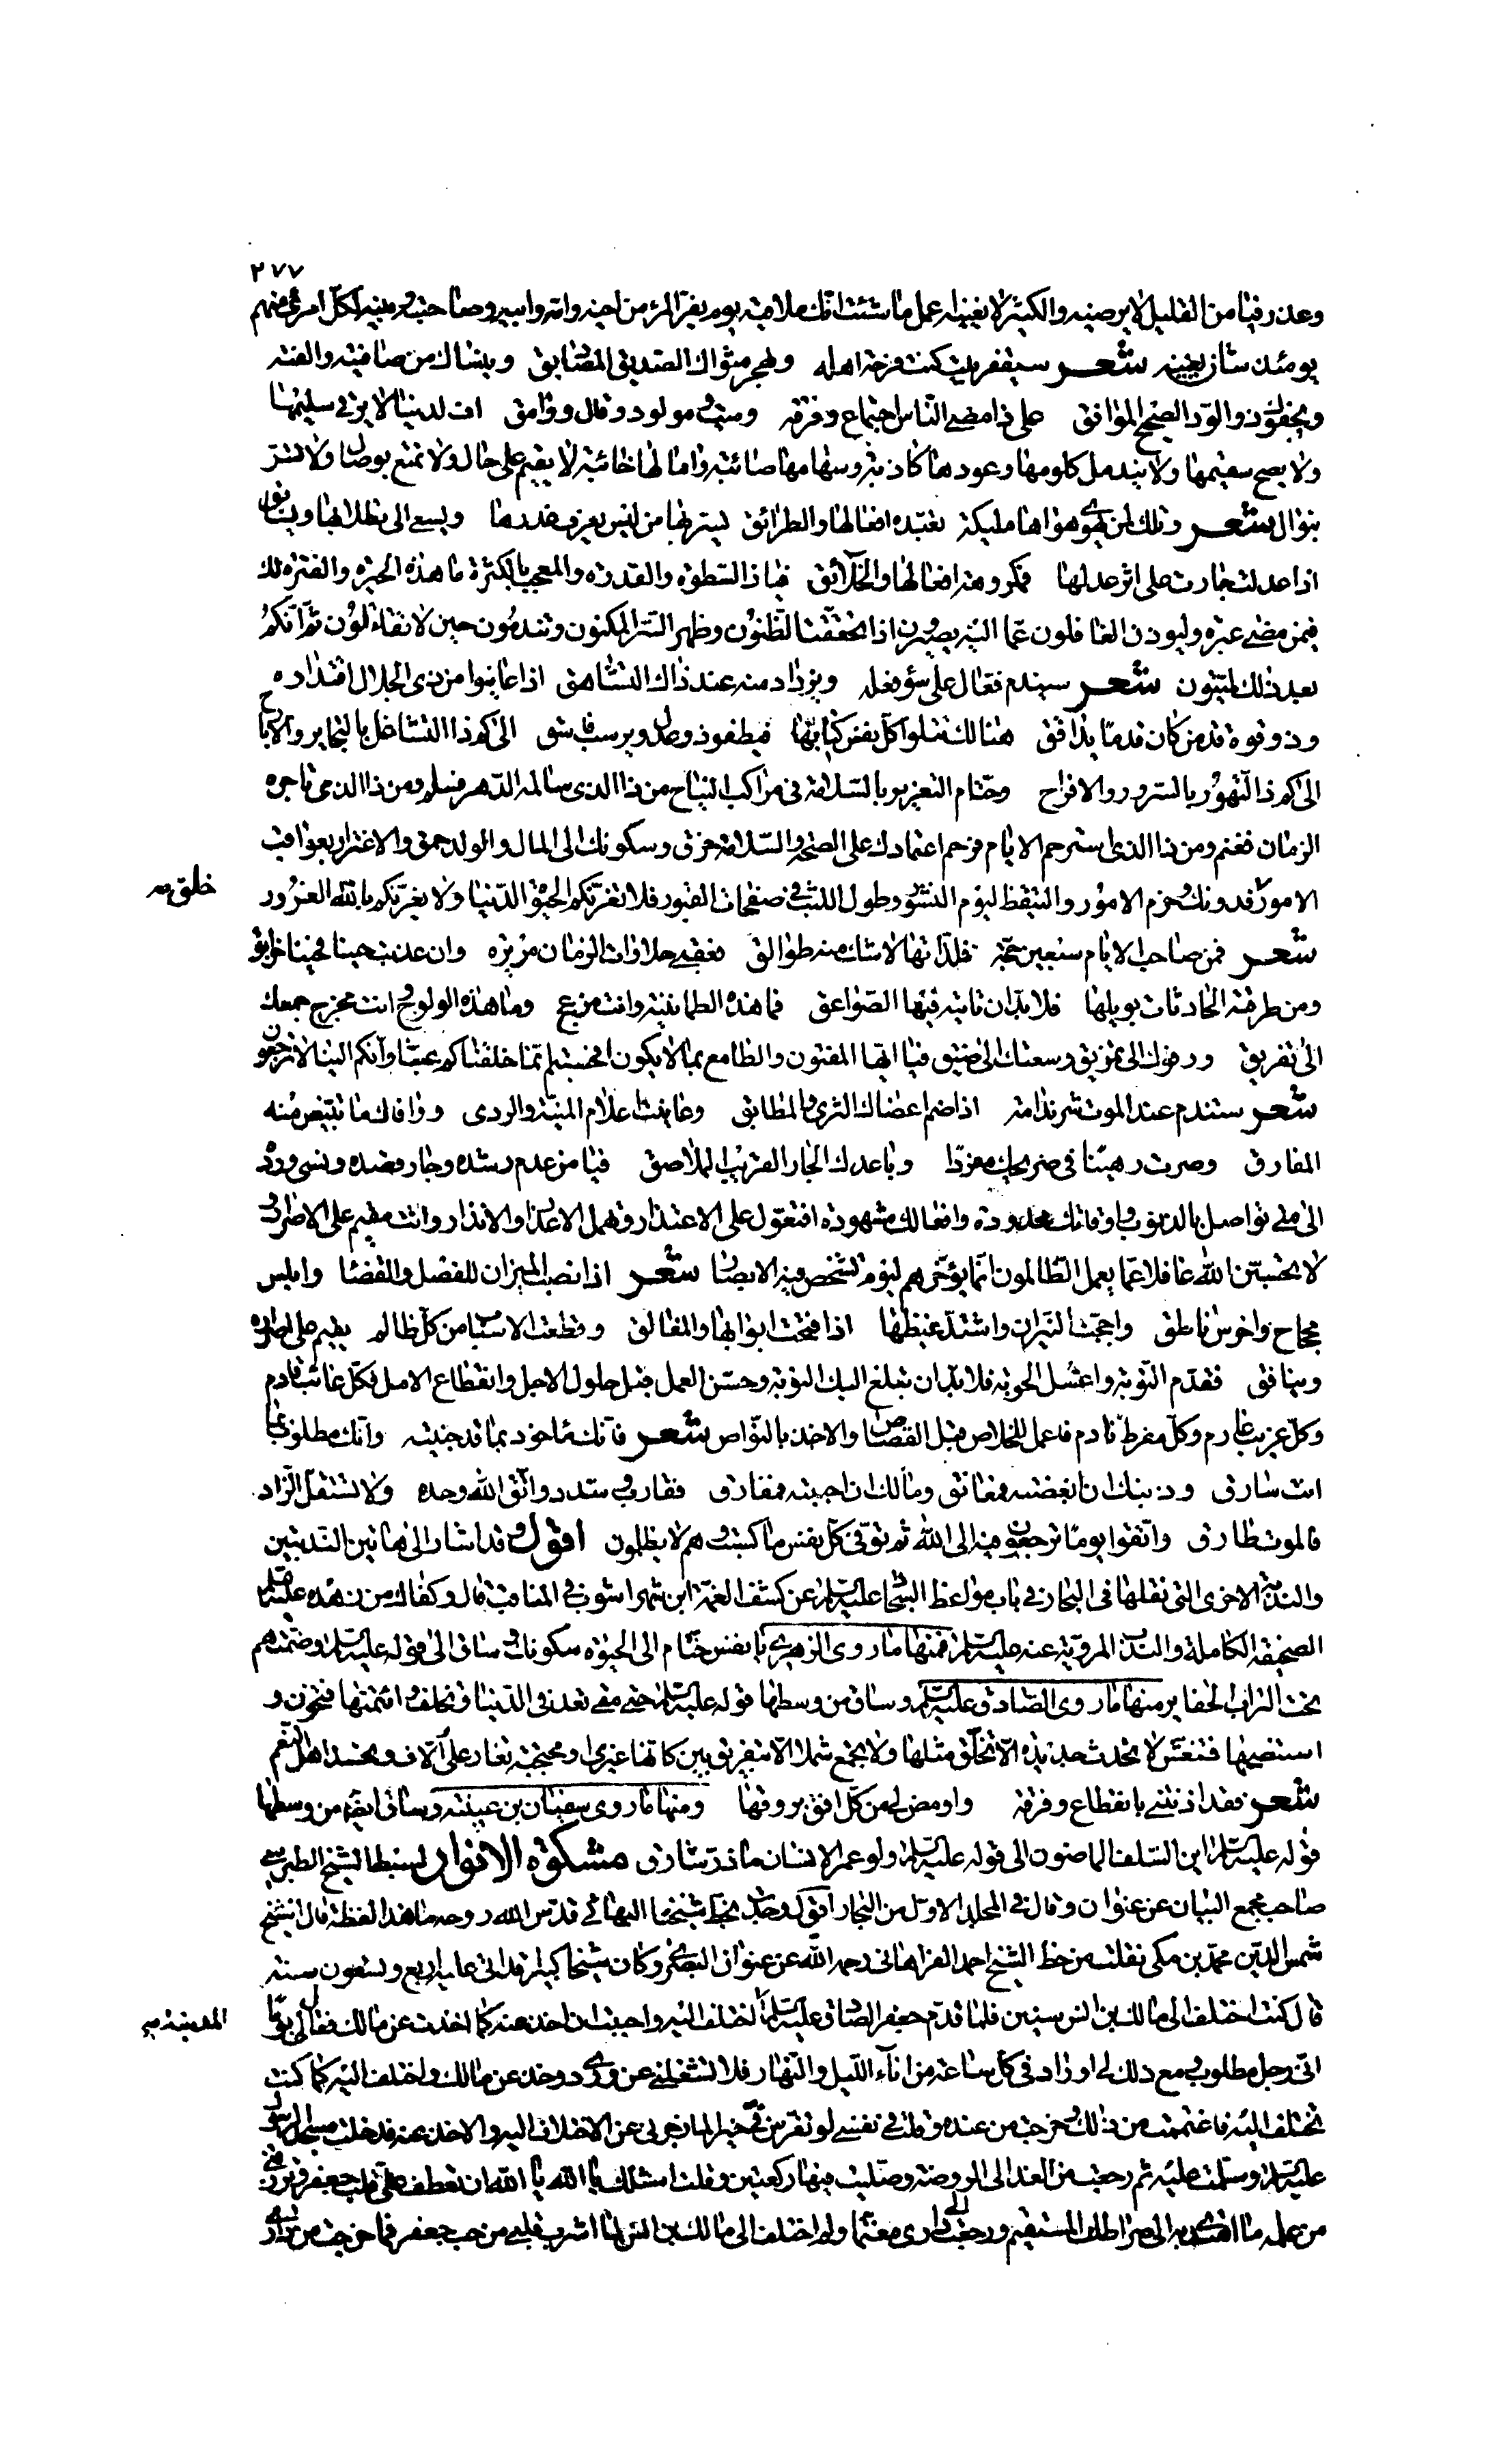 ٢٧٧
وعد رفيا من القليل لا يرضيه والكثير لا يغنيه اعمل ما شئت انك ملاقيه يوم يفر المرء من اخيه وامه وابيه وصاحبته وبنيه لكل امرئ منهم
يومئذ شان يغنيه شعر سيقفر بيت كنت فرحة اهله ويهجر مثواك الصديق المصادق وينساك من صافيته والفته
ويجفوك ذو الود الصحيح الموافق على ذا مضى الناس اجتماع وفرقة وميت ومولود وقال ووامق اف لدنيا لا يرقى سليمها
ولا يصح سقيمها ولا يندمل كلومها وعودها كاذبة وسهامها صائبة وامالها خائبة لا يقيم على حال ولا تمتع بوصال ولا تسر
بنوال شعر وتلك لمن يهوى هواها مليكة تعبده افعالها والطرائق يسر بها من ليس يعرف غدرها ويسعى الى تطلابها ويسابق
اذا عدلت جارت على اثر عدلها فمكروهة افعالها والخلائق فيا ذا السطوة والقدرة والمعجب بالكثرة ما هذه الحيرة والفترة لك
فيمن مضى عبرة وليوذن الغافلون عما اليه يصيرون اذا تحققت الظنون وظهر السر المكنون وتندمون حين لا تقالون ثم انكم
بعد ذلك لميتون شعر سيندم فعال على سوء فعله ويزداد منه عند ذاك التشاهق اذا عاينوا من ذي الجلال اقتداره
وذو قوة قد من كان قدما يداقق هنالك تتلو كل نفس كتابها فيطفو ذو عدل ويرسب فاسق الى كم ذا التشاغل بالتجاير والارباح
الى كم ذا التهور بالسرور والافراح وحتام التغرير بالسلامة في مراكب النياح من ذا الذي سالمه الدهر فسلم ومن ذا الذي تاجره
الزمان فغنم ومن ذا الذي استرحم الايام فرحم اعتمادك على الصحة والسلامة خرق وسكونك الى المال والولد حمق والاغترار بعواقب
خلق
الامور فدونك وحزم الامور والتيقظ ليوم النشور وطول اللبث في صفحات القبور فلا تغرنكم الحيوة الدنيا ولا يغرنكم بالله الغرور
شعر فمن صاحب الايام سبعين حجة فلذاتها لا شك منه طوالق فعقبى حلاوات الزمان مريرة وان عذبت حينا فحينا خرابق
ومن طرقته الحادثات بويلها فلا بد ان تاتيه فيها الصواعق فما هذه الطمانينة وانت مزعج وما هذه الولوج وانت مخرج جمعك
الى تفريق ووفرك الى تمزيق وسعتك الى ضيق فيا ايها المفتون والطامع بما لا يكون افحسبتم انما خلقناكم عبثا وانكم الينا لا ترجعون
شعر ستندم عند الموت شر ندامة اذا ضم اعضاك الثرى والمطابق وعاينت اعلام المنية والردى ووافاك ما تبيض منه
المفارق وصرت رهينا في ضريحك مفردا وباعدك الجار القريب الملاصق فيا من عدم رشده وجار قصده ونسي ورده
الى متى تواصل بالذنوب واوقاتك محدودة وافعالك مشهودة افتعول على الاعتذار وتهمل الاعذار والانذار وانت مقيم على الاصرار و
لا تحسبن الله غافلا عما يعمل الظالمون انما يؤخرهم ليوم تشخص فيه الابصار شعر اذا نصب الميزان للفصل والقضا وابلس
محجاج واخرس ناطق واججت النيران واشتد غيظها اذا فتحت ابوابها والمغالق وقطعت الاسباب من كل ظالم يقيم على اصراره
وينافق فقدم التوبة واغسل الحوبة فلا بد ان تبلغ اليك النوبة وحسن العمل قبل حلول الاجل وانقطاع الامل فكل غائب قادم
وكل غريب غارم وكل مفرط نادم فاعمل للخلاص قبل القصاص والاخذ بالنواص شعر فانك ماخوذ بما قد جنيته وانك مطلوب بما
انت سارق وذنبك ان ابغضته فمعانق ومالك ان احببته فمفارق فقارب وسدد واتق الله وحده ولا تستقل الزاد
فالموت طارق واتقوا يوما ترجعون فيه الى الله ثم توفى كل نفس ما كسبت وهم لا يظلمون اقول وقد اشار الى هاتين الندبتين
والندبة الاخرى التي نقلها في البحار في باب مواعظ السجاد عليه السلام عن كشف الغمة ابن شهراشوب في المناقب قال وكفاك من زهده عليه السلام
الصحيفة الكاملة والندب المروية عنه عليه السلام فمنها ما روى الزهري يا نفس حتام الى الحيوة سكونك وساق الى قوله عليه السلام وضمنتهم
تحت التراب الحفاير منها ما روى الصادق عليه السلام وساق من وسطها قوله عليه السلام حتى متى تعدني الدنيا فتخلف وائتمنها فتخون و
استنصحها فتغش لا تحدث جديدة الا تخلق مثلها ولا تجمع شملا الا بتفريق بين كانها غيرى او محتجبة تغار على الآلاف وتحسد اهل النعم
شعر فقد اذنتني بانقطاع وفرقة واومض لي من كل افق بروقها ومنها ما روى سفيان بن عيينة وساق ايضا من وسطها
قوله عليه السلام اين السلف الماضون الى قوله عليه السلام ولو عمر الانسان ما ذر شارق مشكوة الانوار لسبط الشيخ الطبرسي
صاحب مجمع البيان عن عنوان وقال في المجلد الاول من البحار اقول وجدت بخط شيخنا البهائي قدس الله روحه ما هذا لفظه قال الشيخ
شمس الدين محمد بن مكي نقلت من خط الشيخ احمد الفراهاني رحمه الله عن عنوان البصري وكان شيخا كبيرا قد اتى عليه اربع وتسعون سنة
قال كنت اختلف الى مالك بن انس سنين فلما قدم جعفر الصادق عليه السلام اختلفت اليه واحببت ان اخذ عنه كما اخذت عن مالك فقال لي يوما
المدينة
اني رجل مطلوب ومع ذلك لي اوراد في كل ساعة من اناء الليل والنهار فلا تشغلني عن وردي وخذ عن مالك واختلف اليه كما كنت
تختلف اليه فاغتممت من ذلك وخرجت من عنده وقلت في نفسي لو تفرس في خيرا لما زجرني عن الاختلاف اليه والاخذ عنه فدخلت مسجد الرسول
عليه السلام وسلمت عليه ثم رجعت من الغد الى الروضة وصليت فيها ركعتين وقلت اسئلك يا الله يا الله ان تعطف علي قلب جعفر وترزقني
من علمه ما اهتدي به الى صراطك المستقيم ورجعت الى داري مغتما ولم اختلف الى مالك بن انس لما اشرب قلبي من حب جعفر فما خرجت من داري